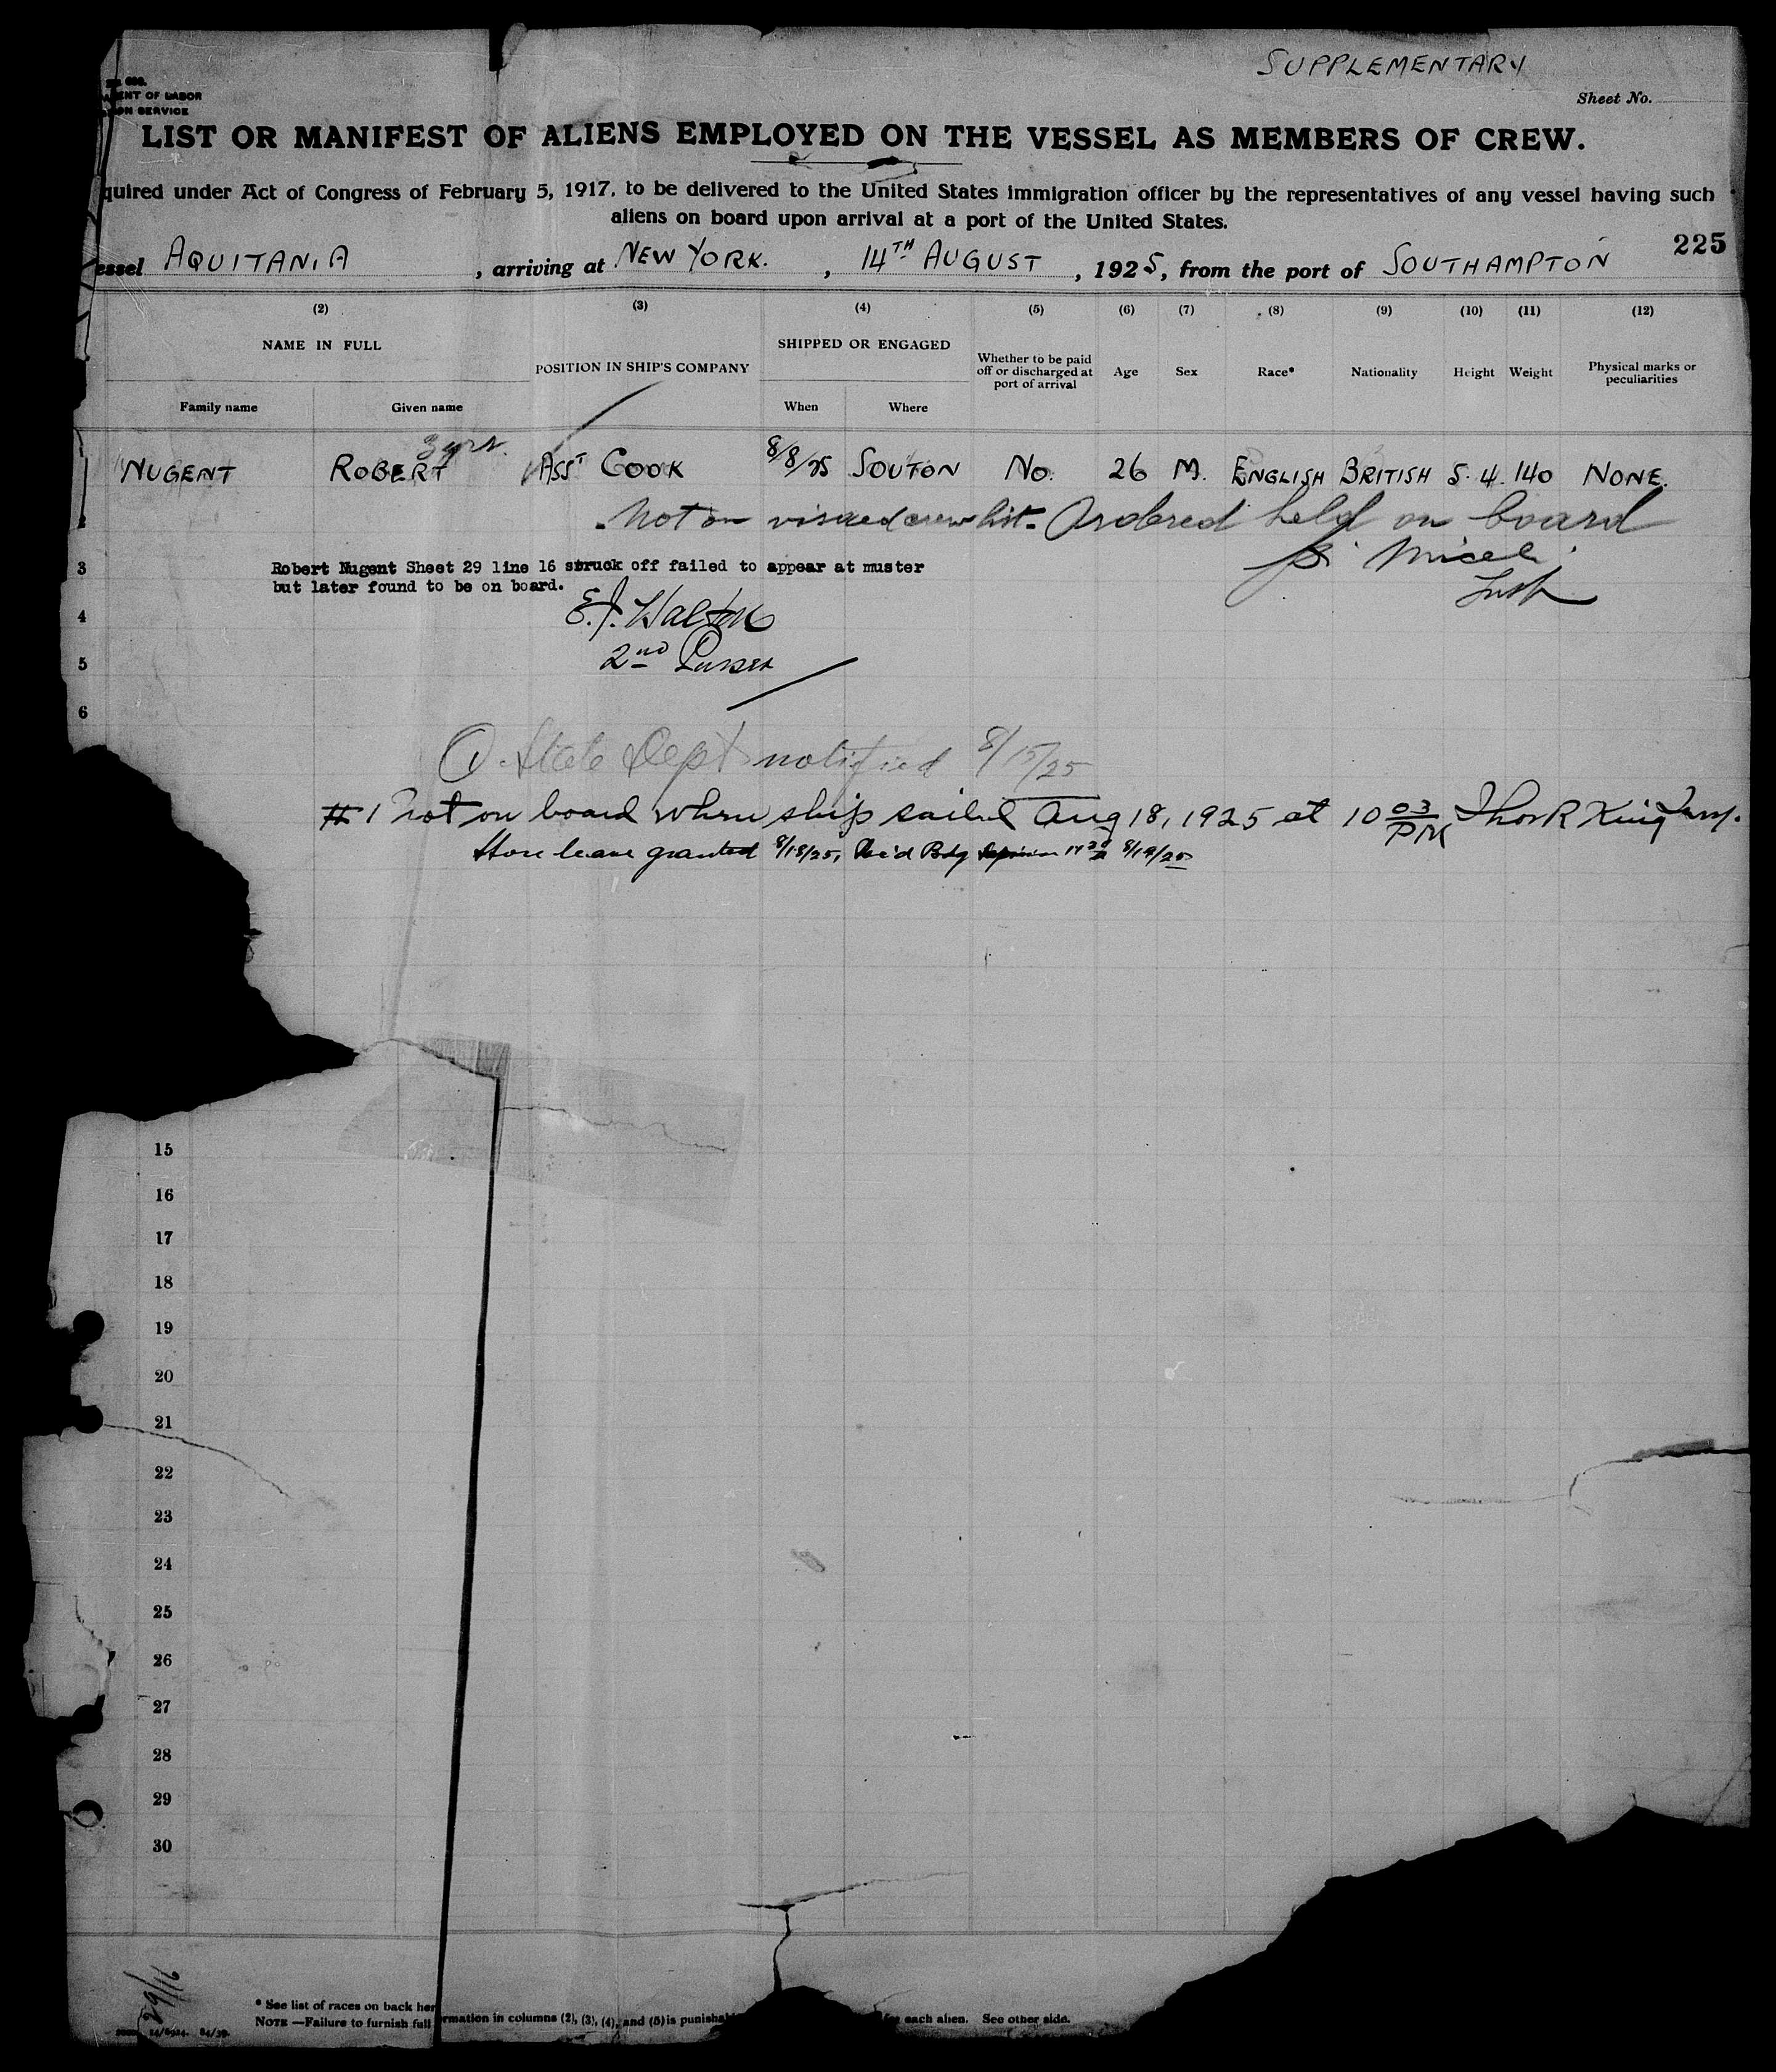 SUPPLEMENTARY
Sheet No.
ENT OF LABOR
ON SERVICE
LIST OR MANIFEST OF ALIENS EMPLOYED ON THE VESSEL AS MEMBERS OF CREW.
quired under Act of Congress of February 5, 1917, to be delivered to the United States immigration officer by the representatives of any vessel having such
aliens on board upon arrival at a port of the United States.
225
essel AQUITANIA, arriving at NEW YORK., 14TH AUGUST, 1925, from the port of SOUTHAMPTON
(2) (3) (4) (5) (6) (7) (8) (9) (10) (11) (12)
NAME IN FULL POSITION IN SHIP'S COMPANY SHIPPED OR ENGAGED Whether to be paid off or discharged at port of arrival Age Sex Race* Nationality Height Weight Physical marks or peculiarities
Family name Given name When Where
3 yrs.
NUGENT ROBERT ASST COOK 8/8/25 SOUTON NO. 26 M. ENGLISH BRITISH 5.4. 140 NONE.
Not on visaed crew list. Ordered held on board
3 Robert Nugent Sheet 29 line 16 struck off failed to appear at muster
but later found to be on board.
4 E.J. Walton
5 2nd Purser
6
State Dept notified 8/15/25
# 1 not on board when ship sailed Aug 18, 1925 at 10 03 PM
Shore leave granted 8/18/25, 8/19/25
15
16
17
18
19
20
21
22
23
24
25
26
27
28
29
30
29/16
* See list of races on back her
NOTE—Failure to furnish full rmation in columns (2), (3), (4), and (5) is punisha each alien. See other side.